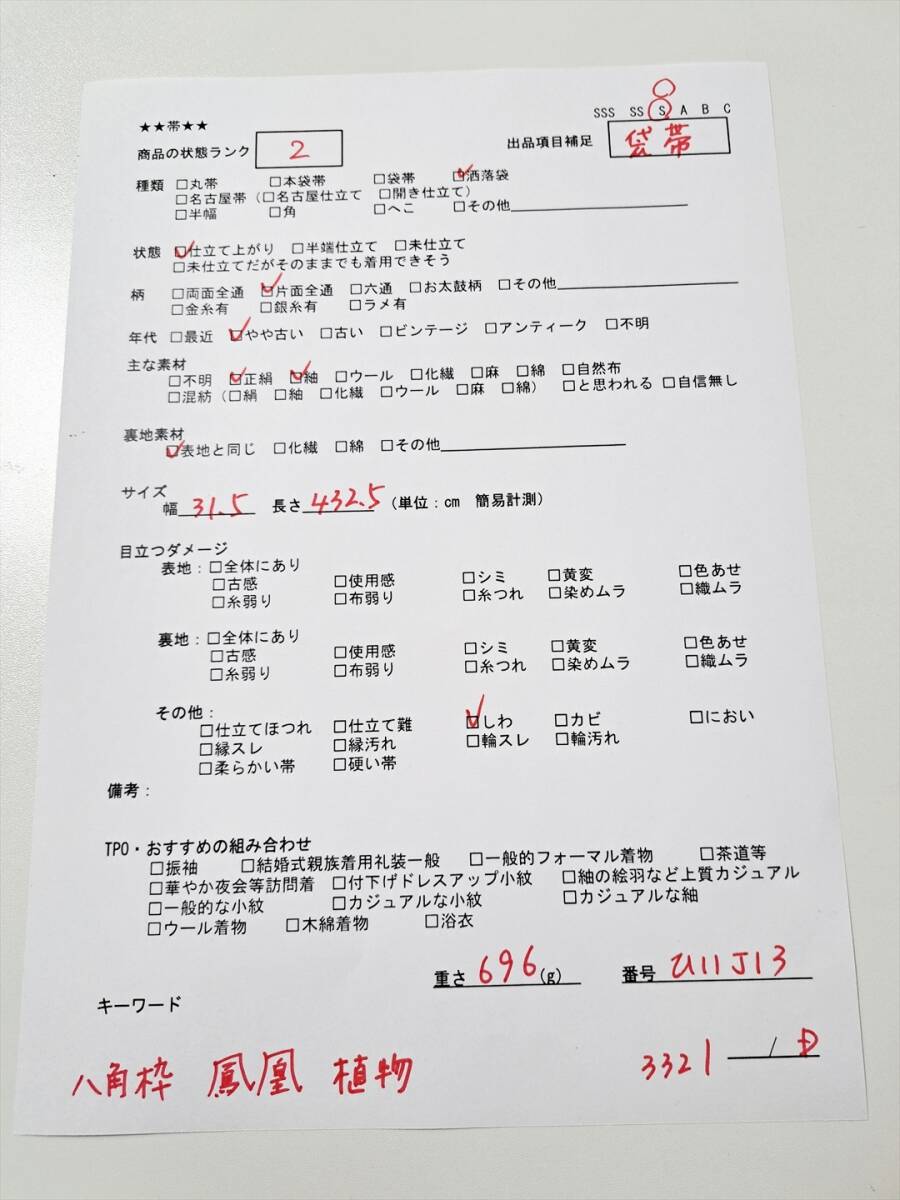 ★★帯★★
SSS SS S A B C
商品の状態ランク 2
出品項目補足 袋帯
種類 □丸帯 □本袋帯 □袋帯 ☑洒落袋
□名古屋帯（□名古屋仕立て □開き仕立て）
□半幅 □角 □へこ □その他
状態 ☑仕立て上がり □半端仕立て □未仕立て
□未仕立てだがそのままでも着用できそう
柄 □両面全通 ☑片面全通 □六通 □お太鼓柄 □その他
□金糸有 □銀糸有 □ラメ有
年代 □最近 ☑やや古い □古い □ビンテージ □アンティーク □不明
主な素材
□不明 ☑正絹 ☑紬 □ウール □化繊 □麻 □綿 □自然布
□混紡（□絹 □紬 □化繊 □ウール □麻 □綿） □と思われる □自信無し
裏地素材
☑表地と同じ □化繊 □綿 □その他
サイズ
幅 31.5 長さ 432.5 （単位：cm 簡易計測）
目立つダメージ
表地：□全体にあり
□古感 □使用感 □シミ □黄変 □色あせ
□糸弱り □布弱り □糸つれ □染めムラ □織ムラ
裏地：□全体にあり
□古感 □使用感 □シミ □黄変 □色あせ
□糸弱り □布弱り □糸つれ □染めムラ □織ムラ
その他：
□仕立てほつれ □仕立て難 ☑しわ □カビ □におい
□縁スレ □縁汚れ □輪スレ □輪汚れ
□柔らかい帯 □硬い帯
備考：
TPO・おすすめの組み合わせ
□振袖 □結婚式親族着用礼装一般 □一般的フォーマル着物 □茶道等
□華やか夜会等訪問着 □付下げドレスアップ小紋 □紬の絵羽など上質カジュアル
□一般的な小紋 □カジュアルな小紋 □カジュアルな紬
□ウール着物 □木綿着物 □浴衣
重さ 696 (g) 番号 U11J13
キーワード
八角枠 鳳凰 植物
3321 /